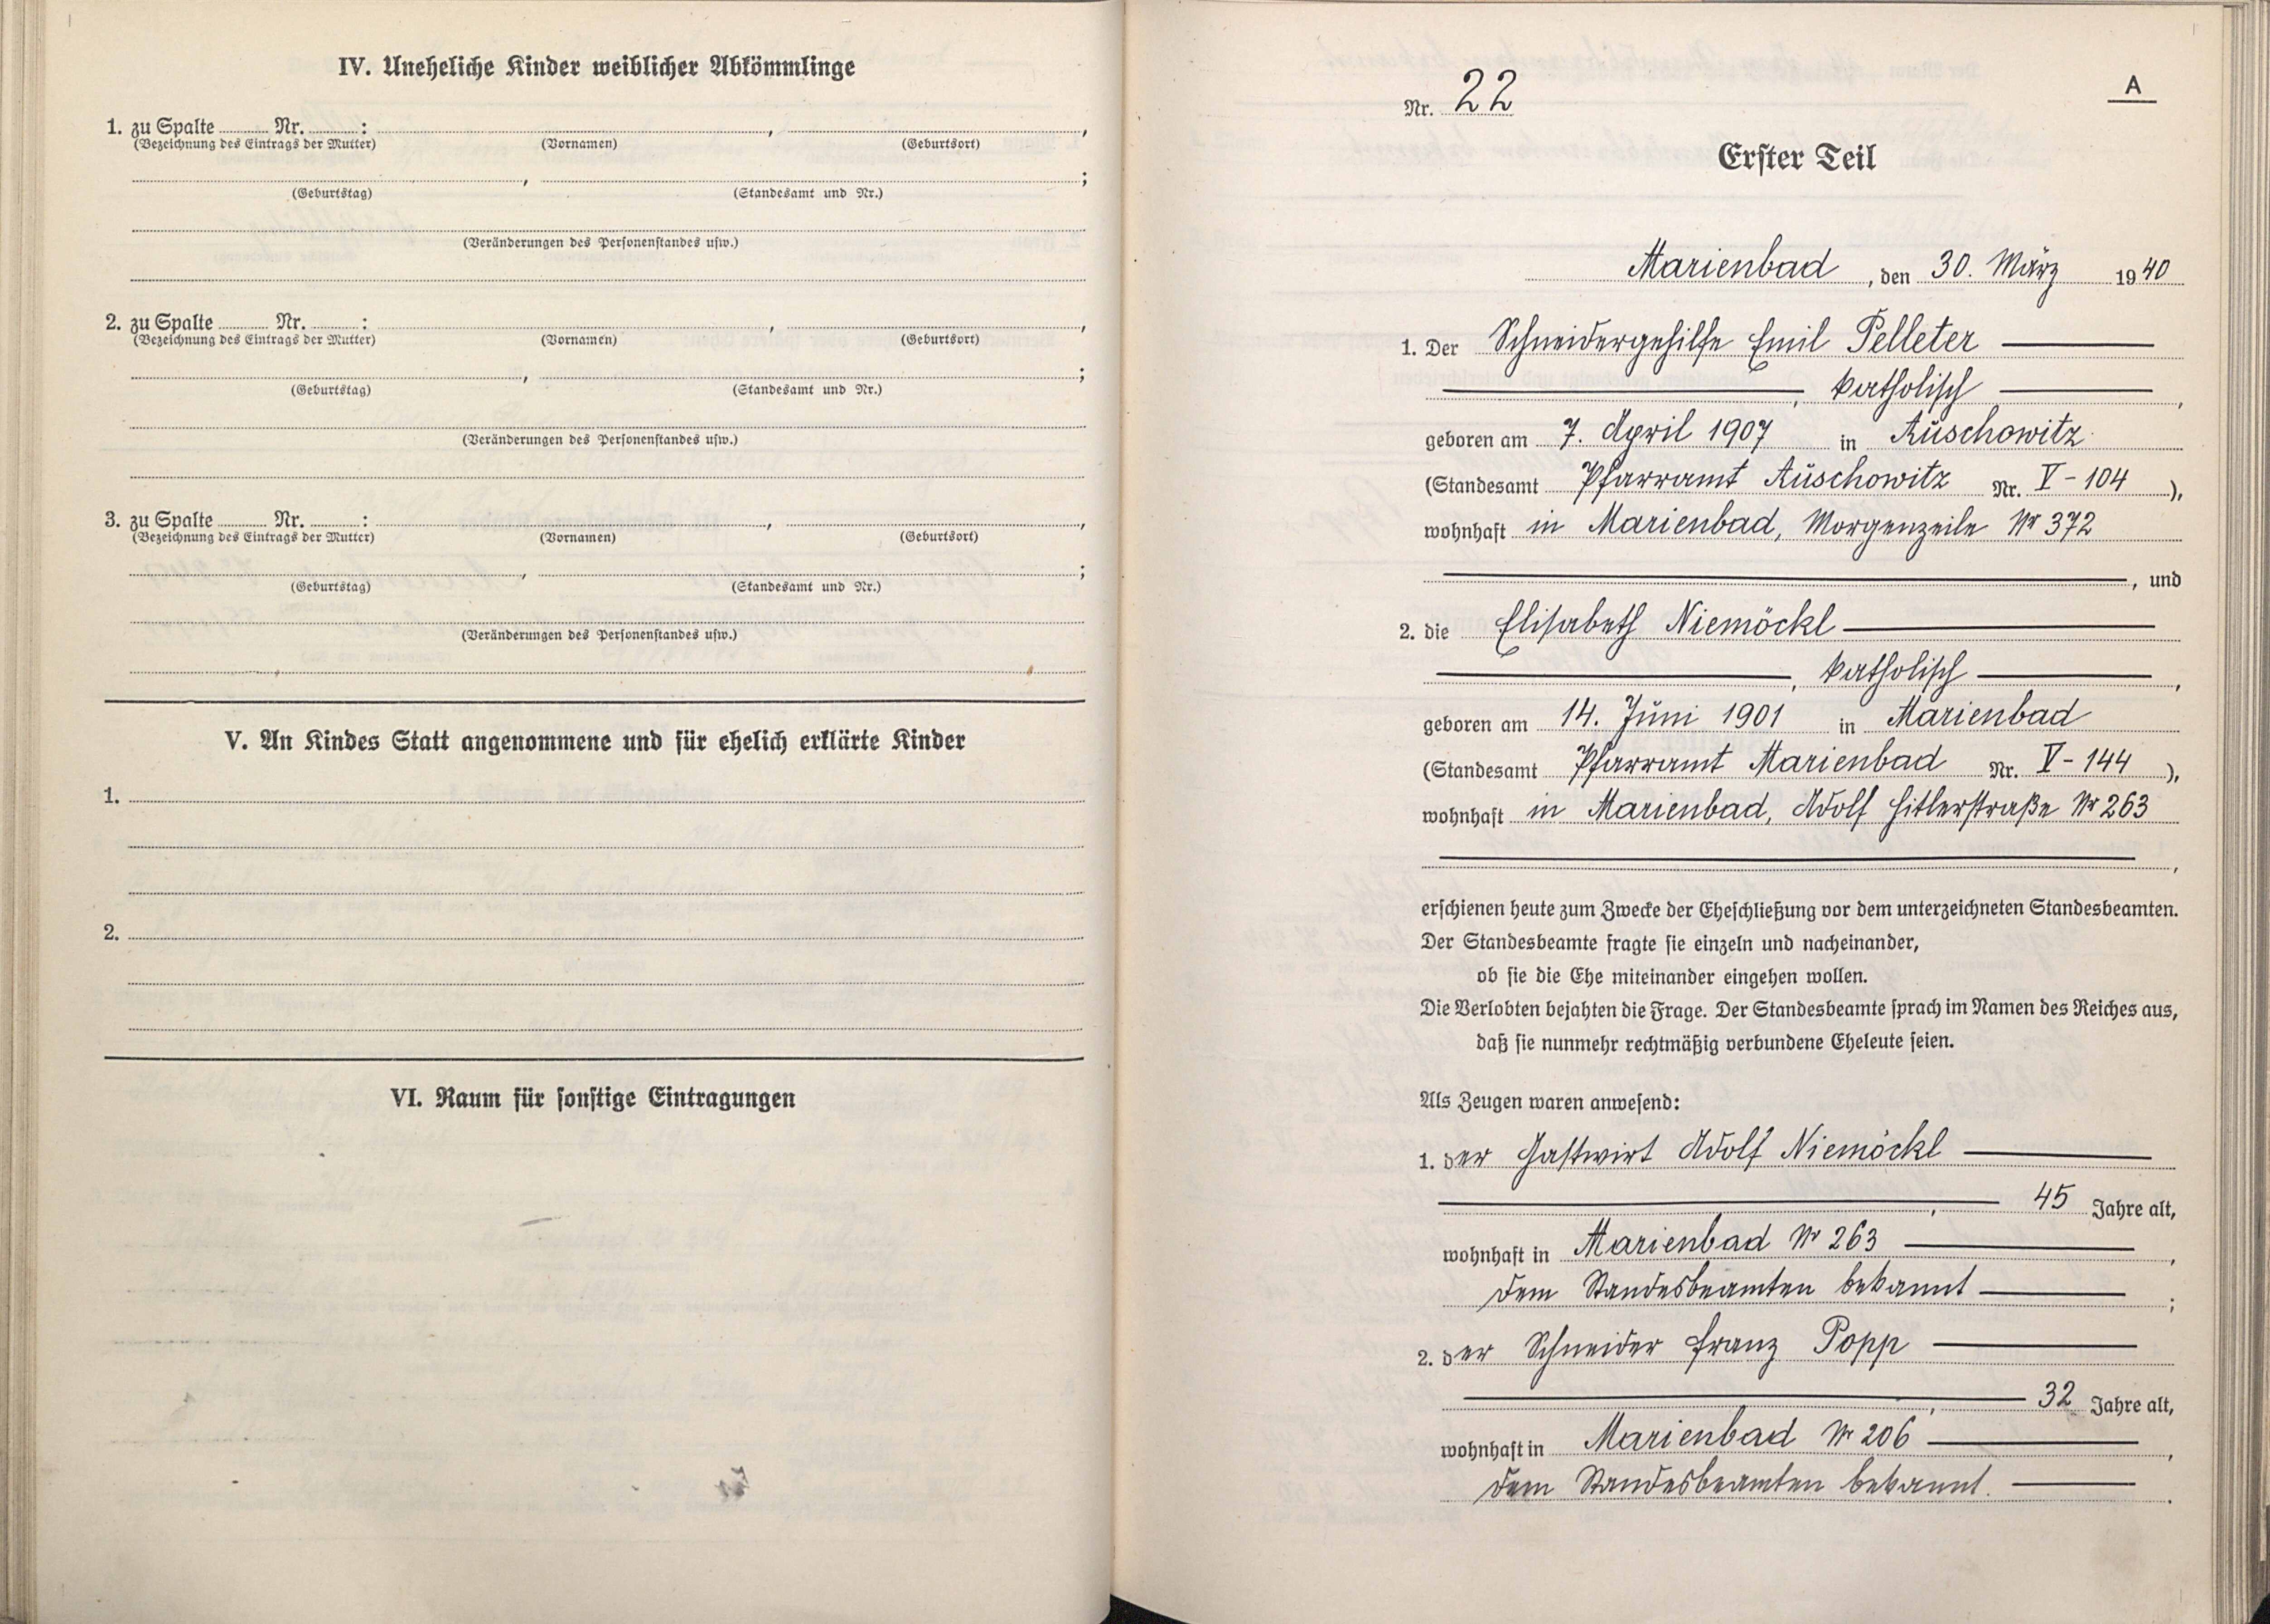 IV. Uneheliche Kinder weiblicher Abkömmlinge
1. zu Spalte ........ Nr. ........ :
(Bezeichnung des Eintrags der Mutter) (Vornamen) (Geburtsort)
(Geburtstag) (Standesamt und Nr.)
(Veränderungen des Personenstandes usw.)
2. zu Spalte ........ Nr. ........ :
(Bezeichnung des Eintrags der Mutter) (Vornamen) (Geburtsort)
(Geburtstag) (Standesamt und Nr.)
(Veränderungen des Personenstandes usw.)
3. zu Spalte ........ Nr. ........ :
(Bezeichnung des Eintrags der Mutter) (Vornamen) (Geburtsort)
(Geburtstag) (Standesamt und Nr.)
(Veränderungen des Personenstandes usw.)
V. An Kindes Statt angenommene und für ehelich erklärte Kinder
1.
2.
VI. Raum für sonstige Eintragungen
A
Nr. 22
Erster Teil
Marienbad, den 30. März 1940
1. Der Schneidergehilfe Emil Pelleter
, katholisch ,
geboren am 7. April 1907 in Auschowitz
(Standesamt Pfarramt Auschowitz Nr. V - 104 ),
wohnhaft in Marienbad, Morgenzeile Nr 372
, und
2. die Elisabeth Niemöckl
, katholisch ,
geboren am 14. Juni 1901 in Marienbad
(Standesamt Pfarramt Marienbad Nr. V - 144 ),
wohnhaft in Marienbad, Adolf Hitlerstraße Nr 263
,
erschienen heute zum Zwecke der Eheschließung vor dem unterzeichneten Standesbeamten.
Der Standesbeamte fragte sie einzeln und nacheinander,
ob sie die Ehe miteinander eingehen wollen.
Die Verlobten bejahten die Frage. Der Standesbeamte sprach im Namen des Reiches aus,
daß sie nunmehr rechtmäßig verbundene Eheleute seien.
Als Zeugen waren anwesend:
1. der Gastwirt Adolf Niemöckl
, 45 Jahre alt,
wohnhaft in Marienbad Nr 263 ,
dem Standesbeamten bekannt ;
2. der Schneider Franz Popp
, 32 Jahre alt,
wohnhaft in Marienbad Nr 206 ,
dem Standesbeamten bekannt. .